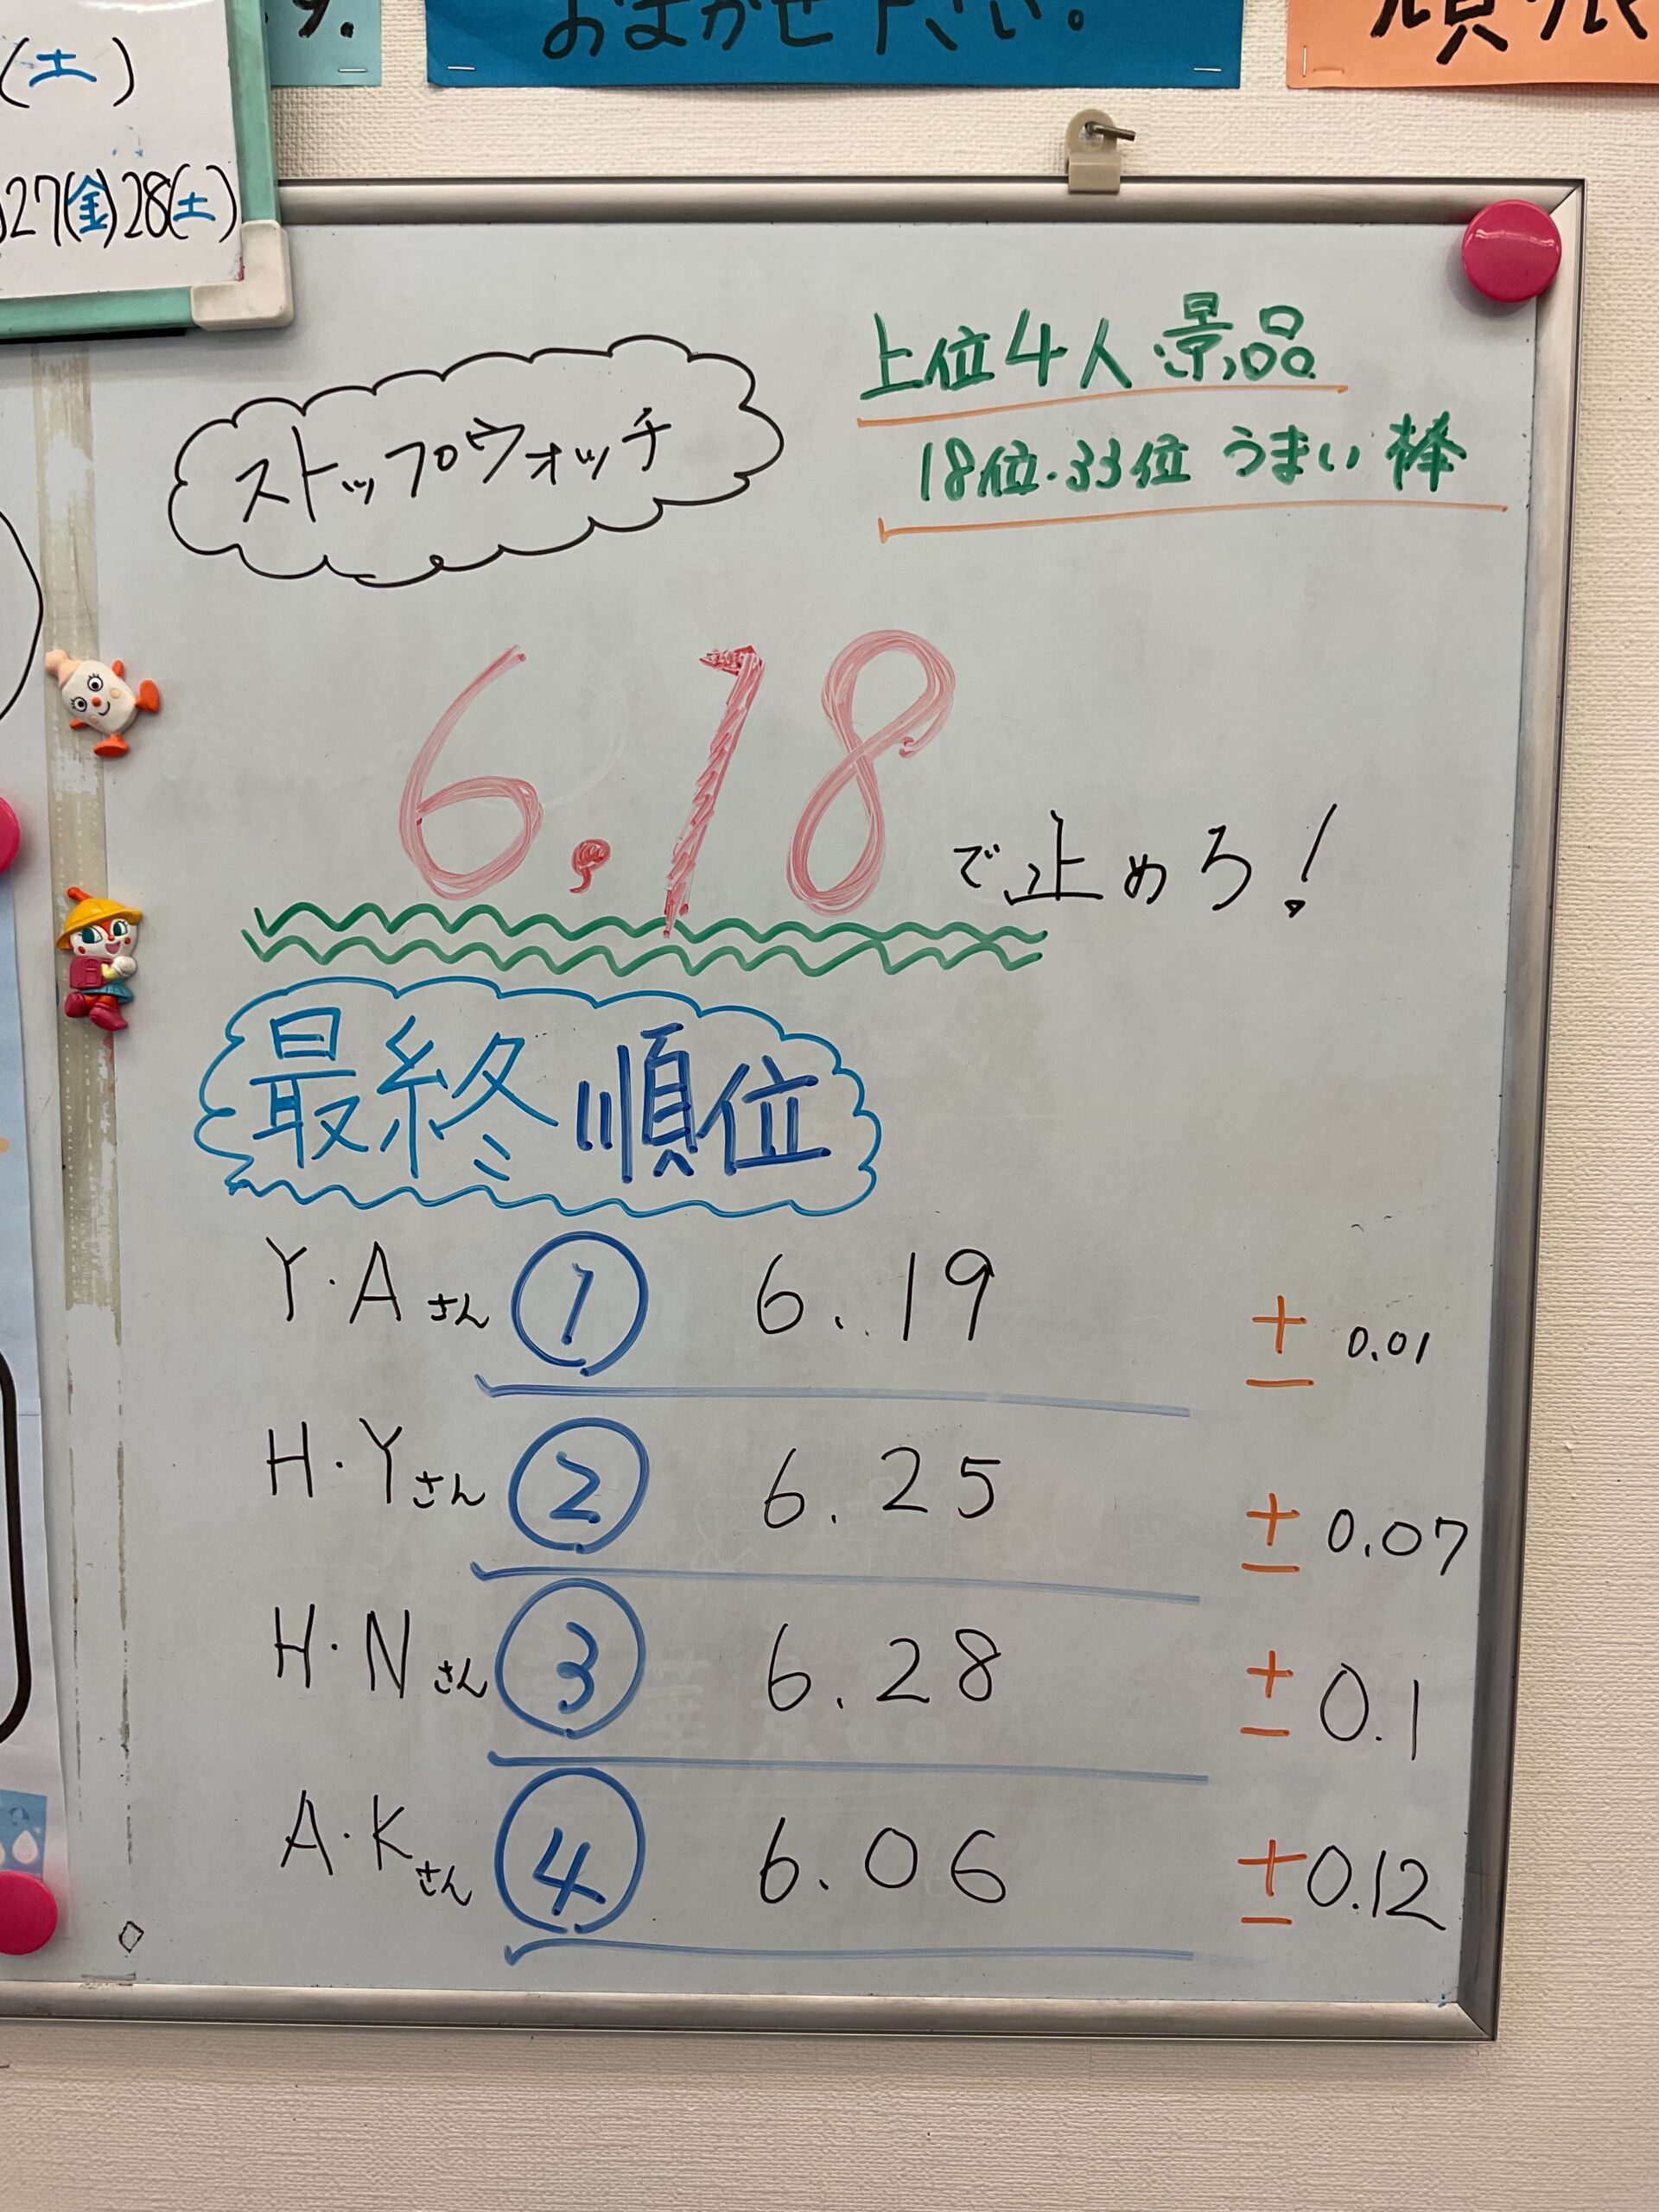 す.
おまかせ下さい。
(土)
27(金)28(土)
ストップウォッチ
上位4人景品
18位・33位 うまい棒
6.18で止めろ!
最終順位
Y・Aさん ① 6.19 ± 0.01
H・Yさん ② 6.25 ± 0.07
H・Nさん ③ 6.28 ± 0.1
A・Kさん ④ 6.06 ± 0.12